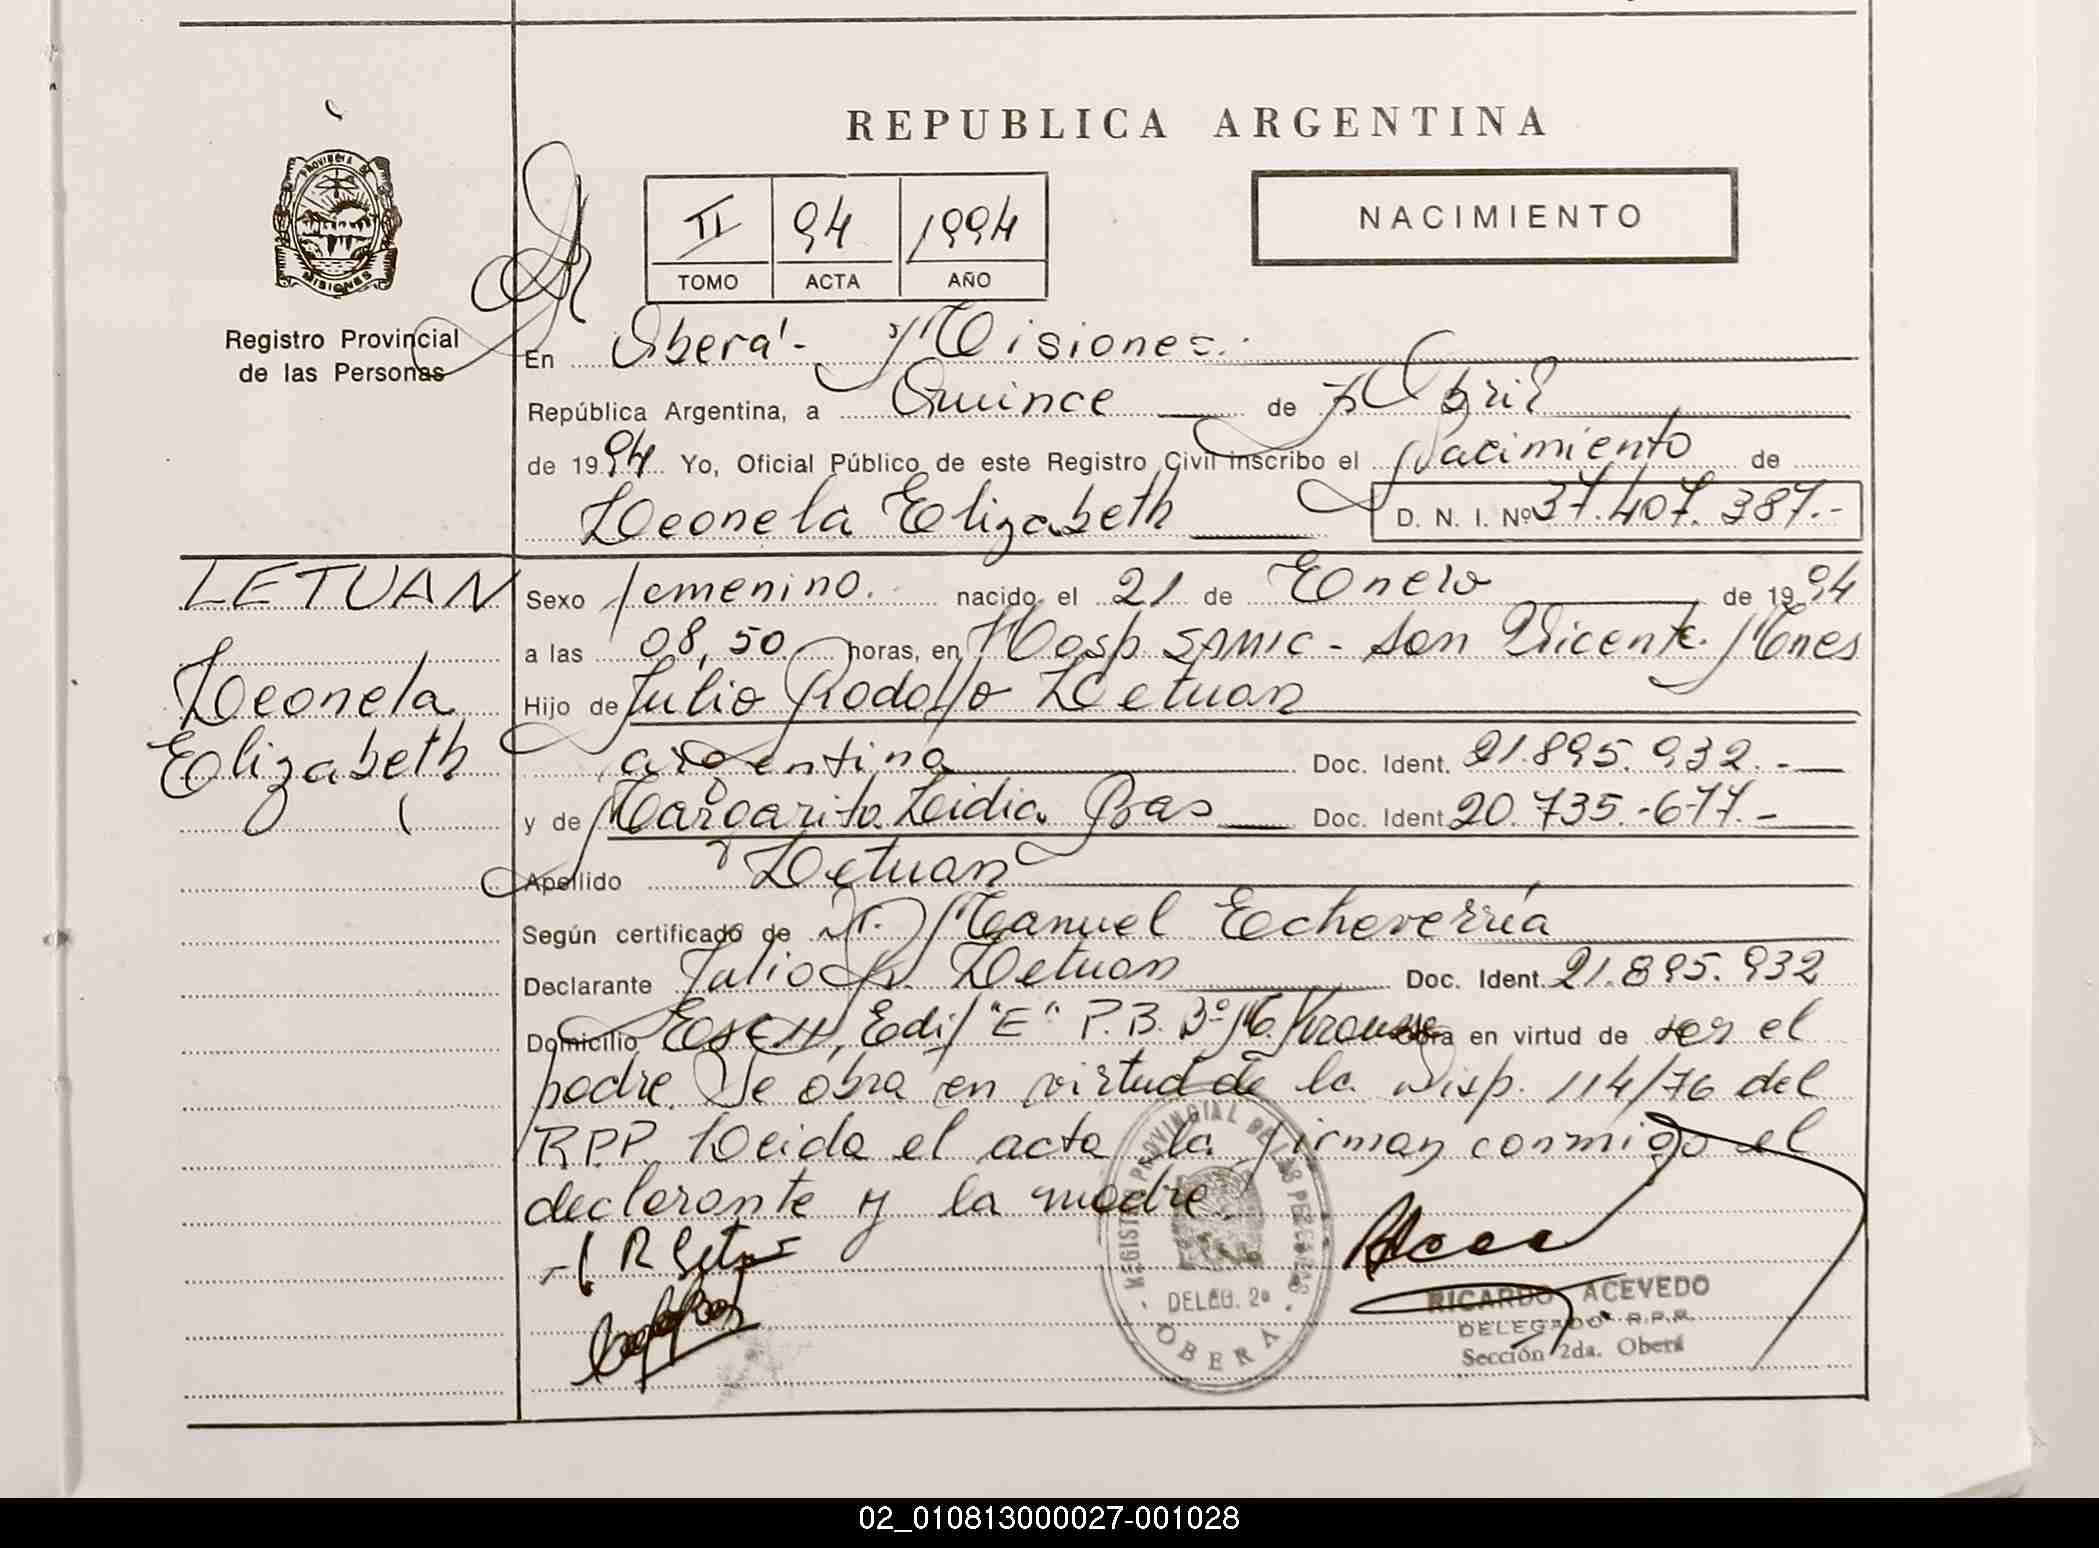 REPUBLICA ARGENTINA
PROVINCIA DE
MISIONES
Registro Provincial
de las Personas
II 94 1994
TOMO ACTA AÑO
NACIMIENTO
En Oberá - Misiones.
República Argentina, a Quince de Abril
de 1994 Yo, Oficial Público de este Registro Civil inscribo el Nacimiento de
Leonela Elizabeth
D. N. I. Nº 37.407.387.-
LETUAN
Leonela
Elizabeth
Sexo femenino. nacido el 21 de Enero de 1994
a las 08,50 horas, en Hosp SAMIC - San Vicente. Mnes
Hijo de Julio Rodolfo Letuan
argentina Doc. Ident. 21.895.932.-
y de Margarita Lidia Bas Doc. Ident. 20.735.-677.-
Apellido Letuan
Según certificado de Dr. Manuel Echeverría
Declarante Julio R. Letuan Doc. Ident. 21.895.932
Domicilio Edif "E" P.B. 3º obra en virtud de ser el
padre. Se obra en virtud de la Disp. 114/76 del
R.P.P. Leida el acta la firman conmigo el
declarante y la madre.
REGISTRO PROVINCIAL DE LAS PERSONAS
DELEG. 2a
OBERA
RICARDO ACEVEDO
DELEGADO R.P.P.
Sección 2da. Oberá
02_010813000027-001028